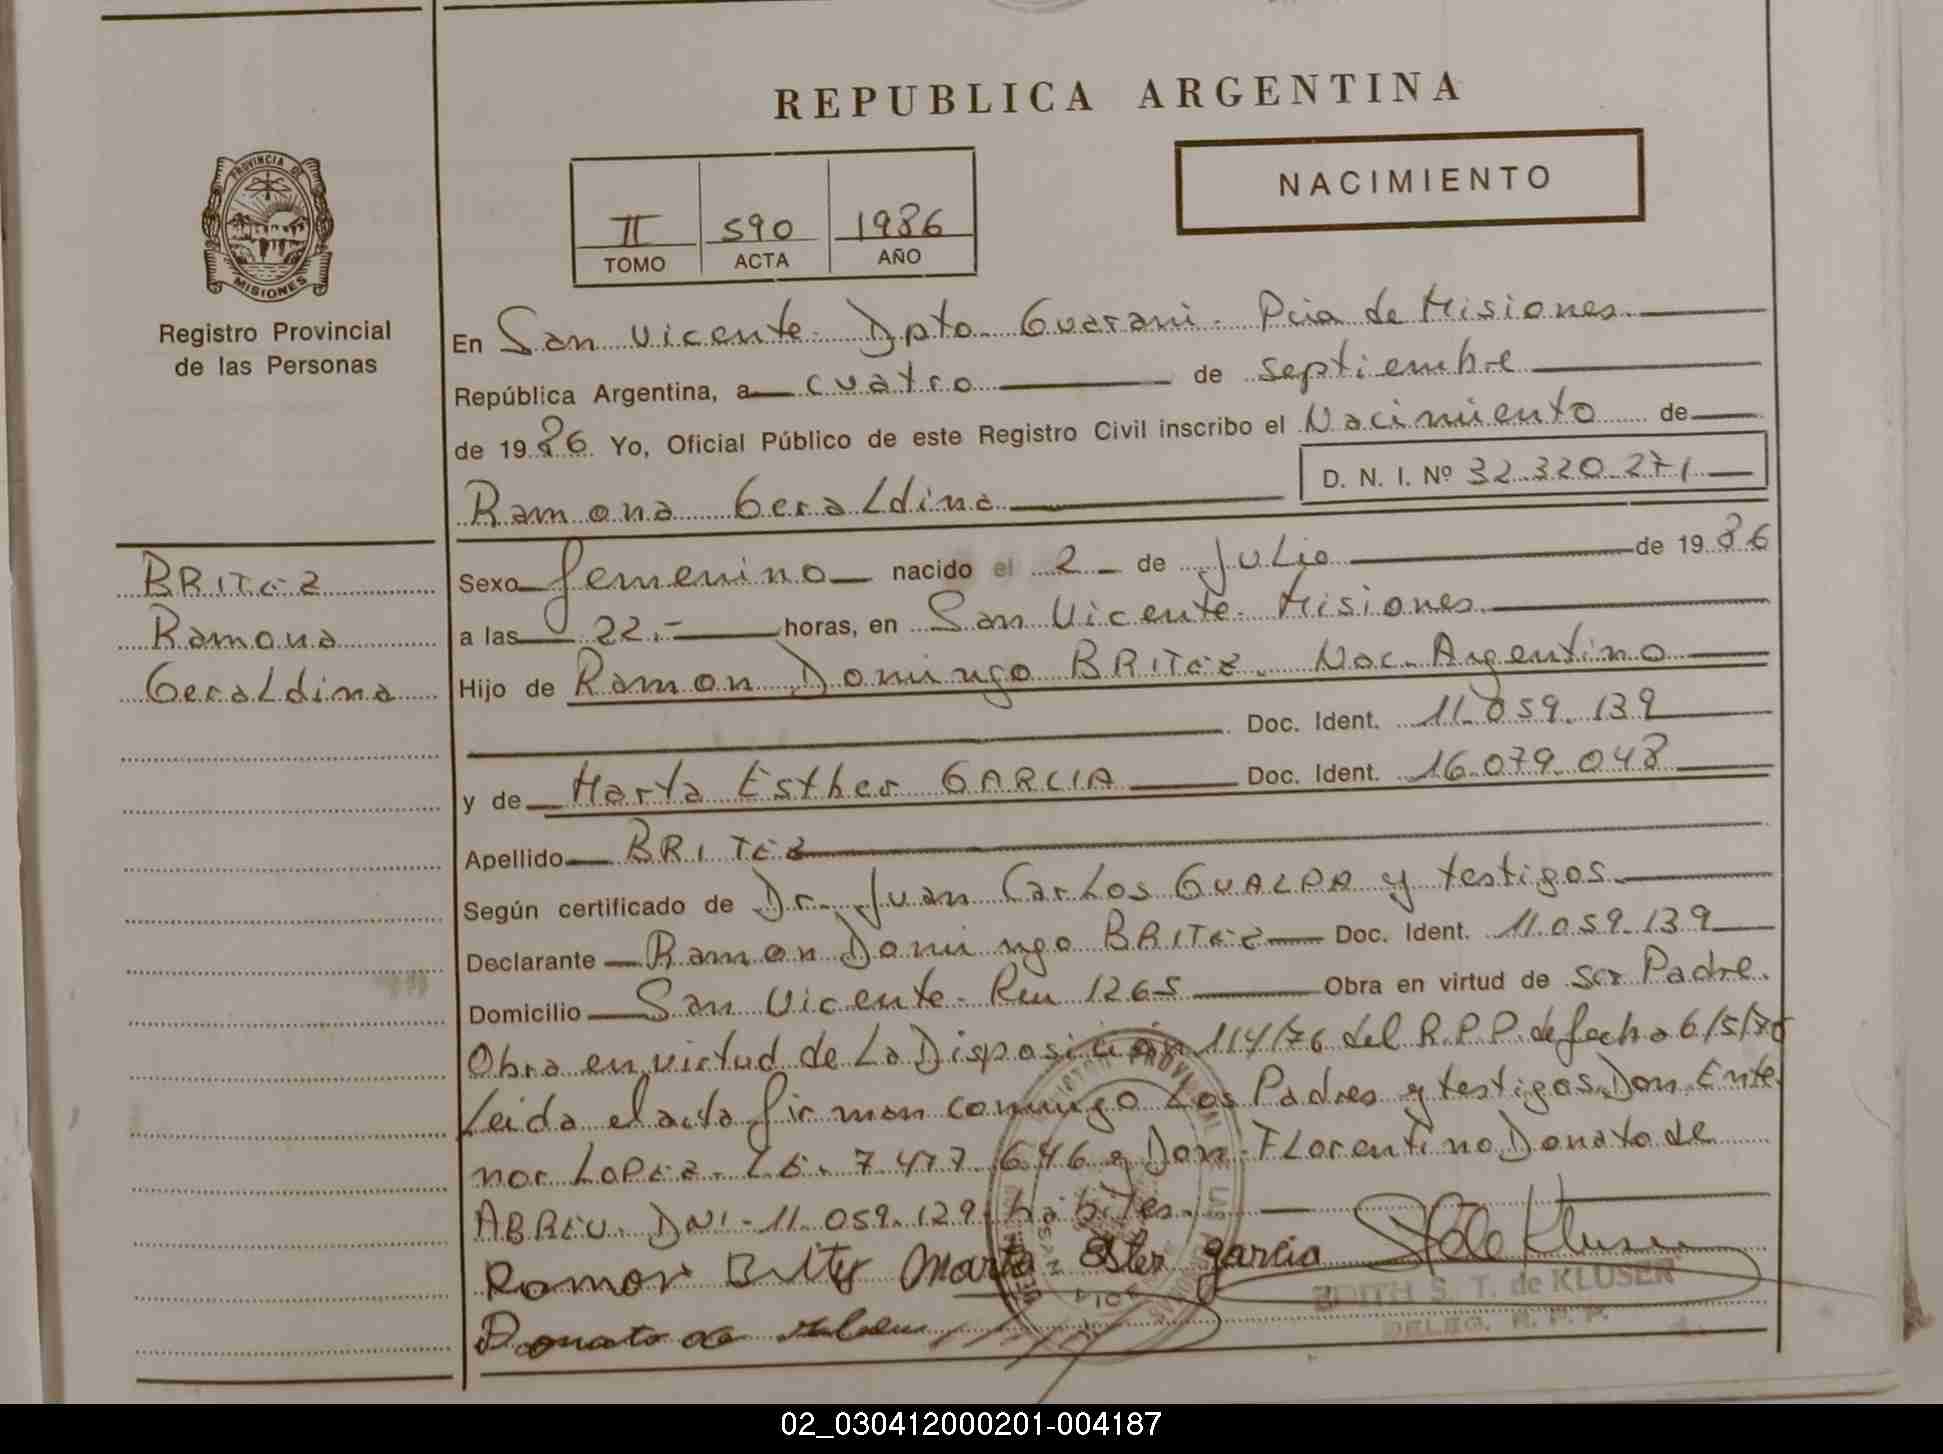 REPUBLICA ARGENTINA
NACIMIENTO
II 590 1986
TOMO ACTA AÑO
PROVINCIA DE
MISIONES
Registro Provincial
de las Personas
En San Vicente. Dpto. Guarani. Pcia de Misiones.
República Argentina, a cuatro de septiembre
de 1986. Yo, Oficial Público de este Registro Civil inscribo el Nacimiento de
Ramona Geraldina D. N. I. Nº 32.320.271
BRITEZ
Ramona
Geraldina
Sexo femenino nacido el 2 de Julio de 1986
a las 22.- horas, en San Vicente. Misiones
Hijo de Ramon Domingo BRITEZ. Nac. Argentino
Doc. Ident. 11.059.139
y de Marta Esther GARCIA Doc. Ident. 16.079.048
Apellido BRITEZ
Según certificado de Dr. Juan Carlos GUALPA y testigos.
Declarante Ramon Domingo BRITEZ Doc. Ident. 11.059.139
Domicilio San Vicente. 1265 Obra en virtud de ser Padre.
Obra en virtud de La Disposición 114/76 del R.P.P. de fecha 6/5/76
Leida el acta firman conmigo Los Padres y testigos Don Ente
nor LOPEZ. L.E. 7.477.646 y Don Florentino Donato de
ABREU. DNI - 11.059.129 habiles.
Ramon Marta Ester garcia
Donato de
EDITH S. T. de KLUSER
DELEG. R. P. P.
02_030412000201-004187